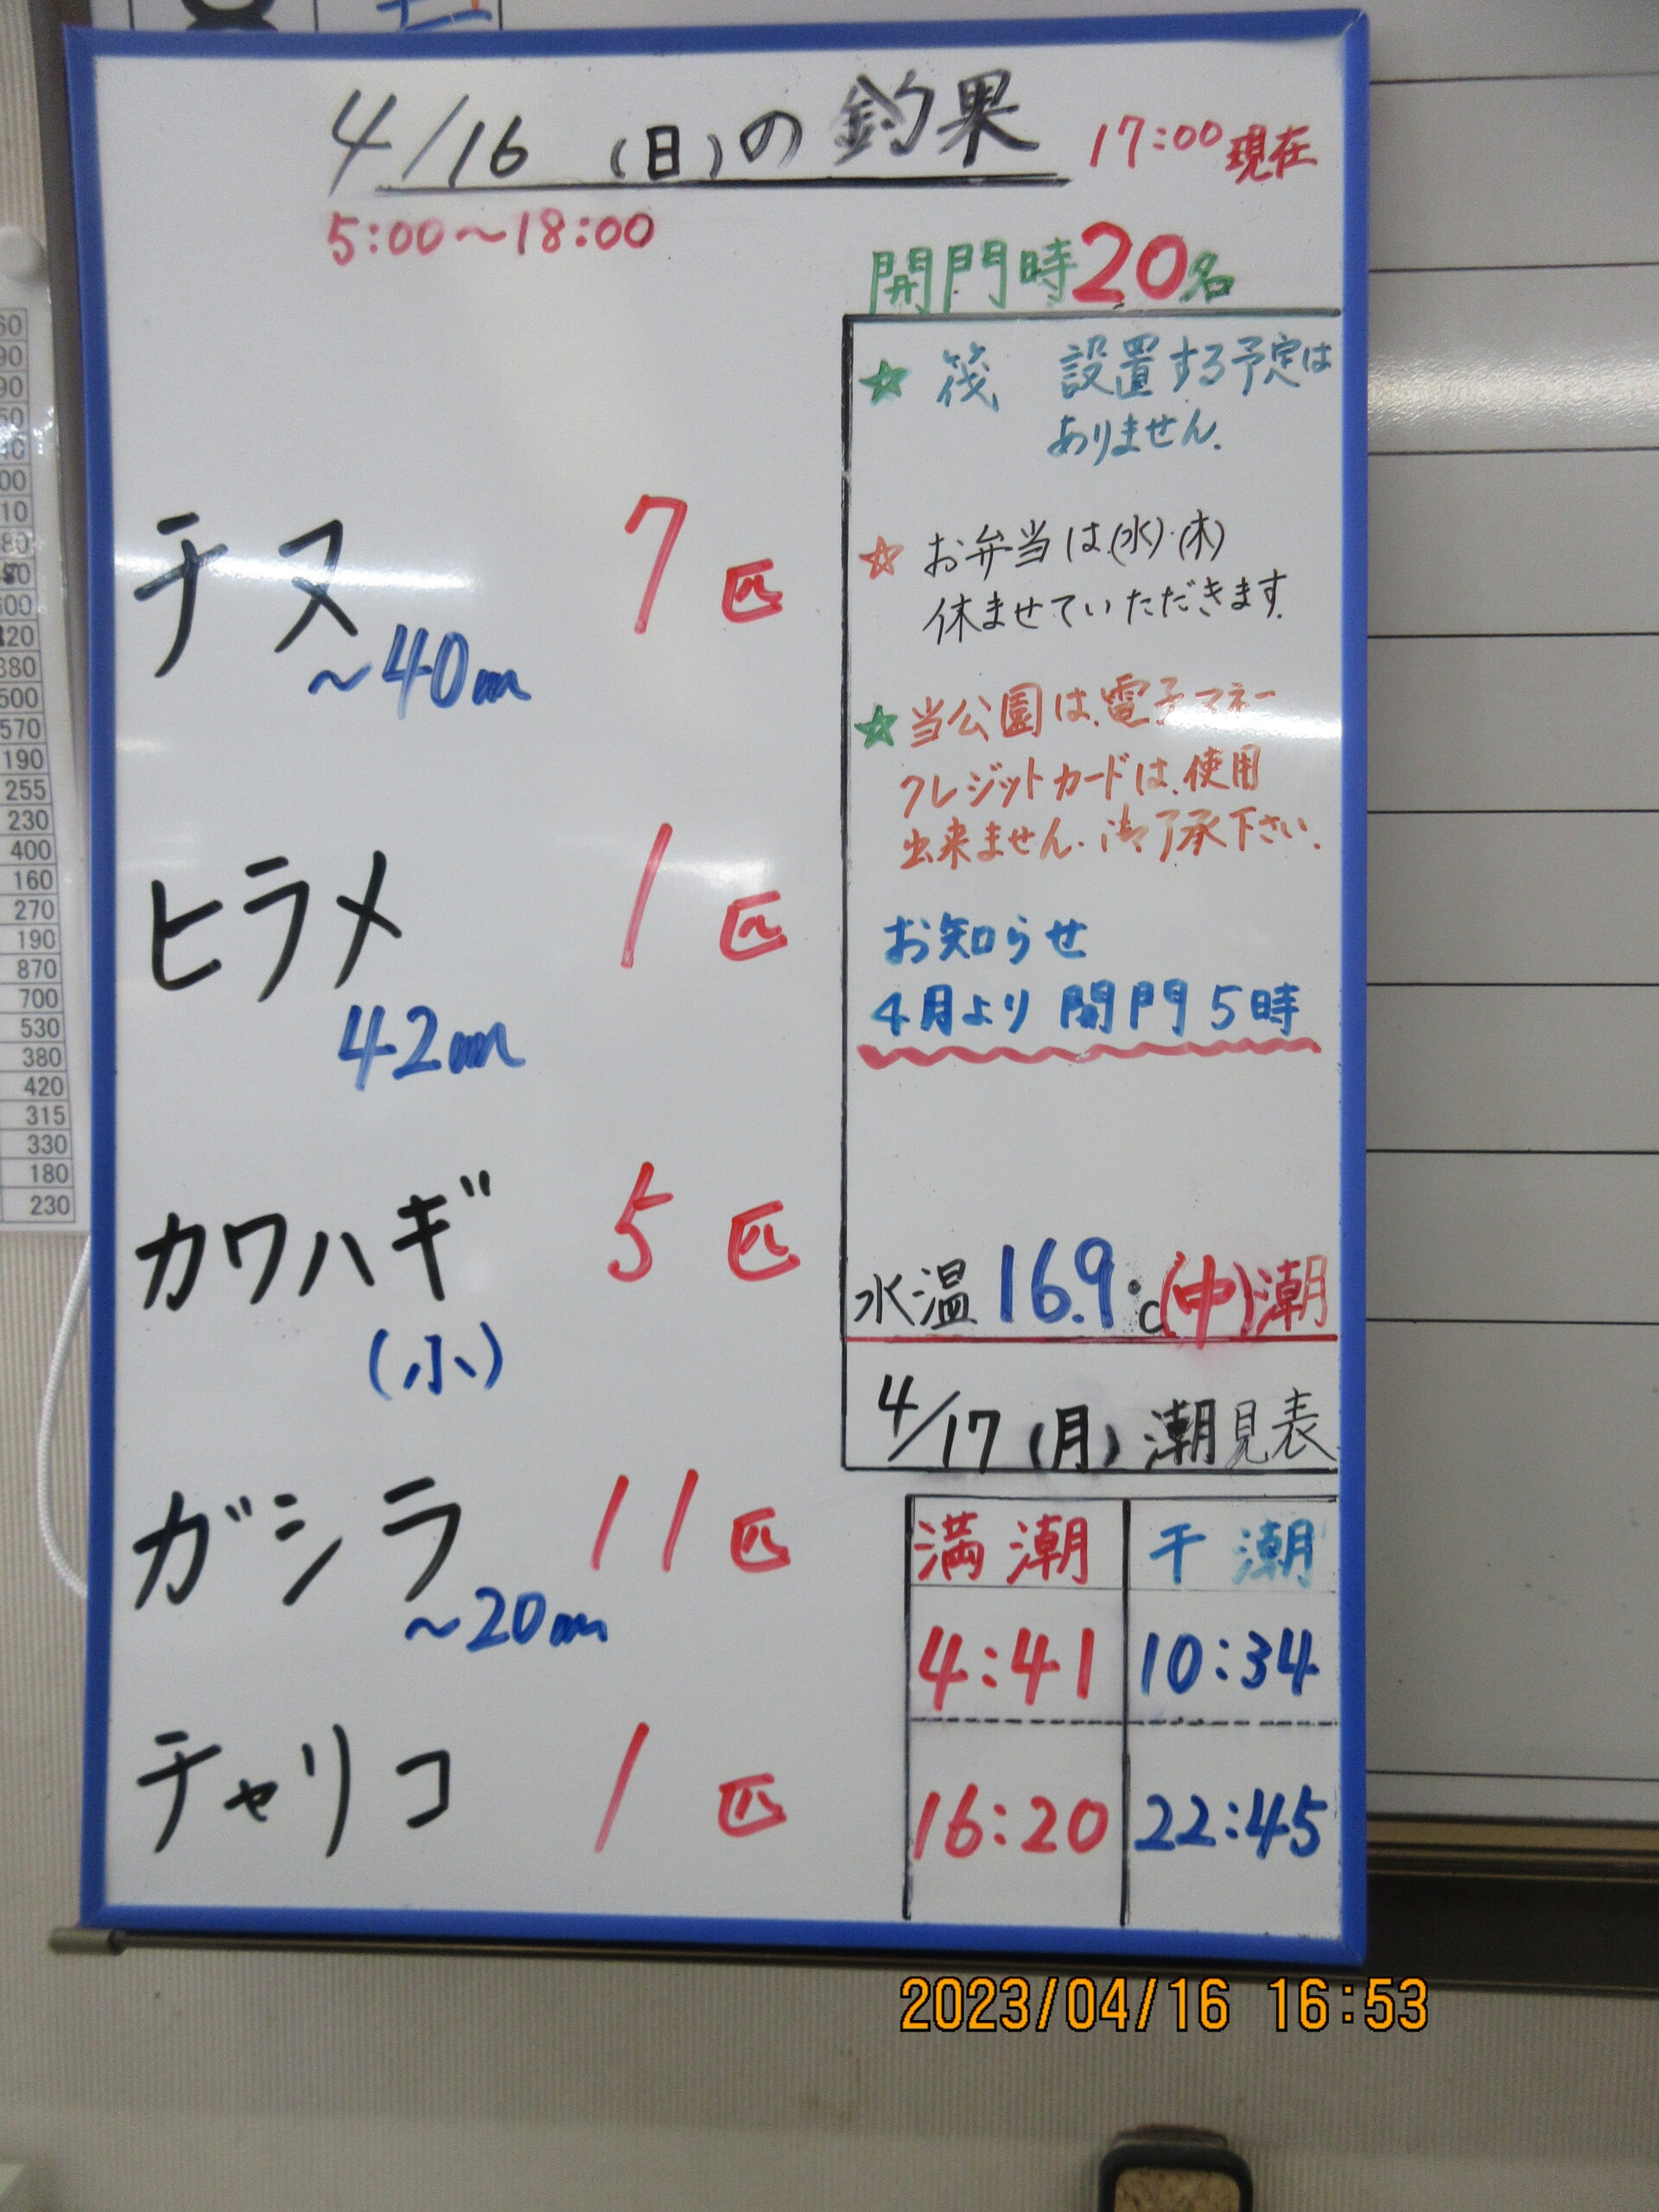 4/16 (日)の釣果 17:00現在
5:00～18:00
開門時20名
☆ 筏 設置する予定は
ありません.
☆ お弁当は(水)・(木)
休ませていただきます.
☆ 当公園は、電子マネー
クレジットカードは、使用
出来ません.御了承下さい.
お知らせ
4月より 開門5時
水温16.9℃(中)潮
4/17(月)潮見表
満潮 干潮
4:41 10:34
16:20 22:45
チヌ 7匹
～40cm
ヒラメ 1匹
42cm
カワハギ 5匹
(小)
ガシラ 11匹
～20cm
チャリコ 1匹
190
255
230
400
160
270
190
870
700
530
380
420
315
330
180
230
2023/04/16 16:53